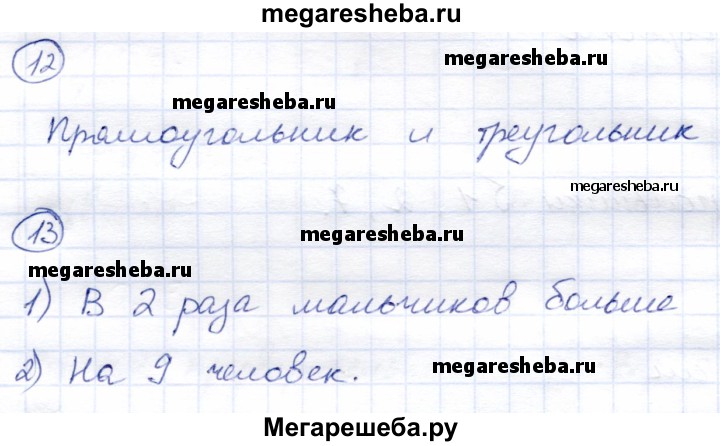 megaresheba.ru
12
megaresheba.ru
Прямоугольник и треугольник
megaresheba.ru
13
megaresheba.ru
megaresheba.ru
1) В 2 раза мальчиков больше
2) На 9 человек.
megaresheba.ru
Мегарешеба.ру